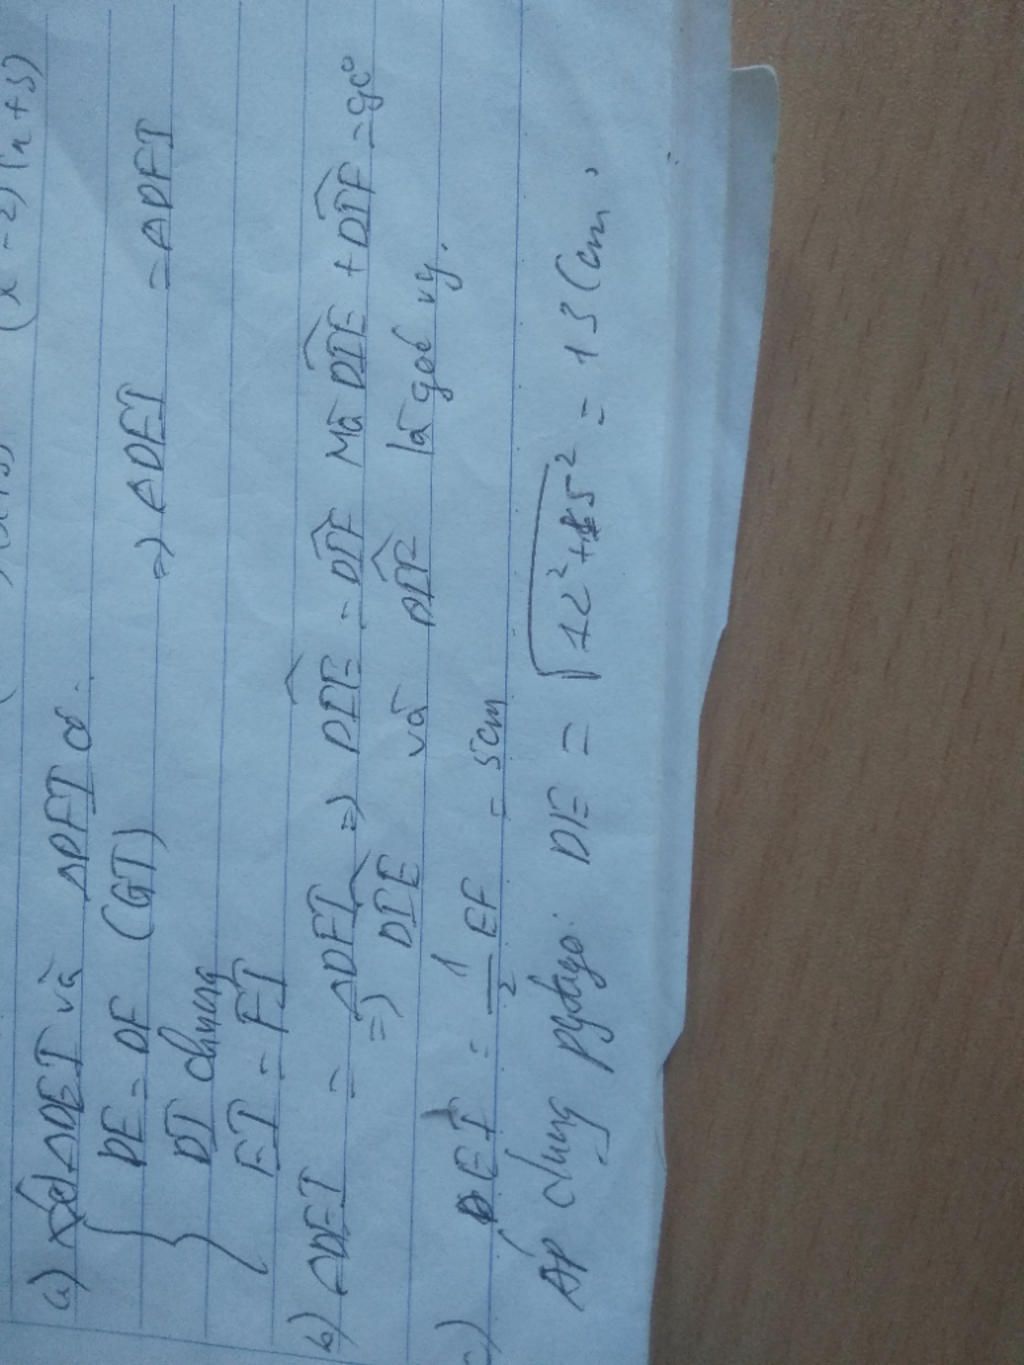 (x-2)(x+3)
a) Xét ΔDEI và ΔDFI có:
DE = DF (GT)
DI chung => ΔDEI = ΔDFI
EI = FI
b) ΔDEI = ΔDFI => DIE = DIF Mà DIE + DIF = 90°
=> DIE và DIF là góc vg.
c) EI = 1/2 EF = 5cm
ÁP dụng pytago: DE = √12²+5² = 13 Cm.